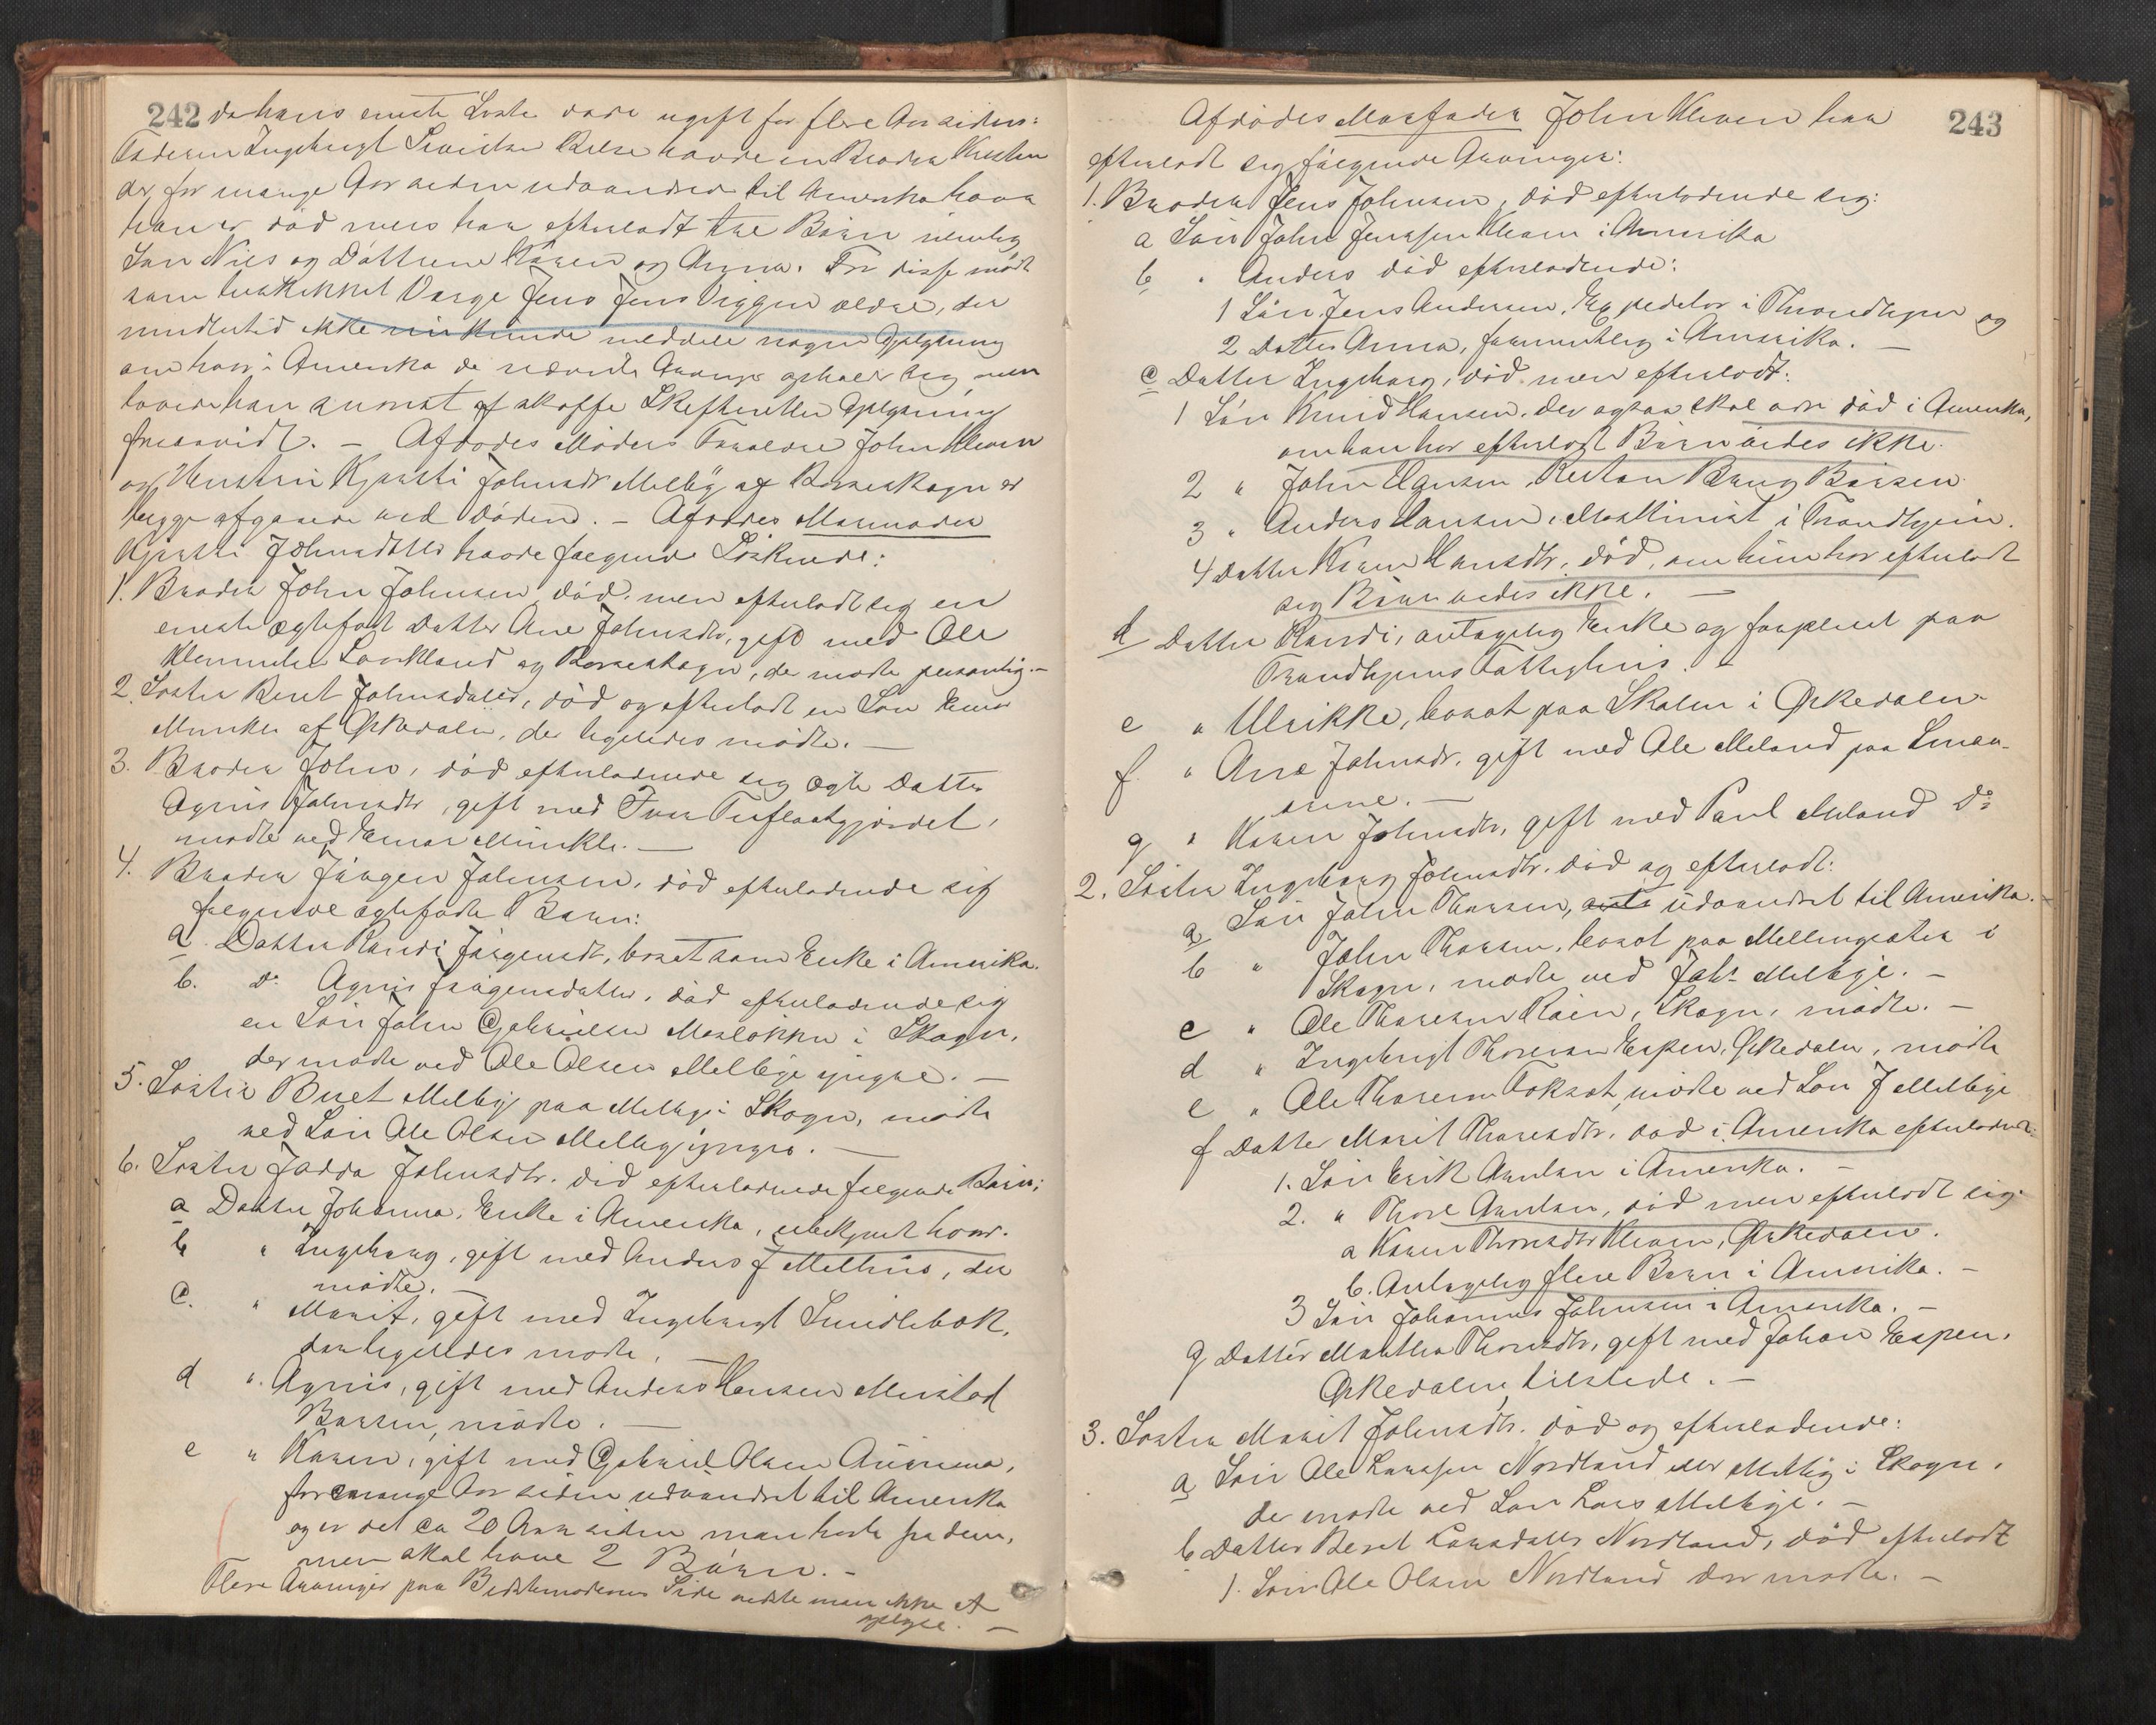 242 da hans eneste Søster døde ugift for flere Aar siden:
Faderen Ingebrigt Sivertsen Belse havde en Broder Kristen
der for mange Aar siden udvandred til Amerika hvor
han er død mens har efterladt tre Børn nemlig
Søn Nils og Døttrene Karen og Anna. For disse mødte
som beskikket Værge Jens Jens Viggen ældre, der
imidlertid ikke kunde meddele nogen Oplysning
om hvor i Amerika de nævnte Arvinger opholdt sig, men
lovede han snarest at skaffe Skifteretten Oplysning
forsaavidt. — Afdødes Moders Forældre John Kleven
og Hustru Kjersti Johnsdtr Melby af Børseskogn er
begge afgaaede ved Døden. — Afdødes Mormoder
Kjersti Johnsdatter havde følgende Søskende:
1. Broder John Johnsen, død, men efterladt sig en
eneste ægtefødt Datter Ane Johnsdtr, gift med Ole
Klemmetsen Lorkland og Børseskogn, der mødte personlig. —
2. Søster Beret Johnsdatter, død og efterladt en Søn Einar
Munkli af Ørkedalen, der ligeledes mødte. —
3. Broder John, død efterladende sig ægte Datter
Agnis Johnsdtr, gift med Iver
mødte ved Einar Munkli. —
4. Broder Jørgen Johnsen, død efterladende sig
følgende ægtefødte Børn:
a. Datter Randi Jørgensdt, bosat som Enke i Amerika.
b. do Agnis Jørgensdatter, død efterladende sig
en Søn John Gabrielsen Mosløkken i Skogn,
der mødte ved Ole Olsen Melbye yngre. —
5. Søster Beret Melby paa Melbye i Skogn, mødte
ved Søn Ole Olsen Melby yngre. —
6. Søster Johnsdtr. død efterladende følgende Børn:
a Datter Johanna, Enke i Amerika, ubekjendt hvor.
b " Ingeborg, gift med Anders J Melhus, der
mødte. —
c. " Marit, gift med Ingebrigt Smidlebak,
der ligeledes mødte. —
d ". Agnis, gift med Anders Hansen Mustad
Børsen, mødte. —
e " Karen, gift med Gabriel Olsen
for mange Aar siden udvandret til Amerika
og er det ca 20 Aar siden man hørte fra dem,
men skal have 2 Børn. —
Flere Arvinger paa Bedstemoderens Side vidste man ikke at
oplyse. —
Afdødes Morfader John Kleven har 243
efterladt sig følgende Arvinger:
1. Broder Jens Johnsen, død efterladende sig:
a Søn John Jenssen Kleven i Amerika
b " Anders død efterladende:
1 Søn Jens Andersen, Expeditør i Throndhjem og
2 Datter Anna, formentlig i Amerika. —
c Datter Ingeborg, død men efterladt:
1 Søn Knud Hansen, der ogsaa skal være død i Amerika,
om han har efterladt Børn vides ikke.
2 " John Hansen, Børsen
3 " Anders Hansen, Maskinist i Trondhjem.
4 Datter Karen Hansdtr, død, om hun har efterladt
sig Børn vides ikke. —
d Datter Randi, antagelig Enke og forpleiet paa
Trondhjems Fattighus. —
e " Ulrikke, bosat paa Skolen i Ørkedalen
f. " Ane Johnsdr. gift med Ole Meland paa Smøen
g " Karen Johnsdtr, gift med Paul Meland Do
2. Søster Ingeborg Johnsdtr. død og efterladt:
a Søn John Thoresen, udvandret til Amerika. —
b " John Thoresen, bosat paa Mellingsæter i
Skogn, mødte ved Joh. Melbye. —
c " Ole Thoresen Røen, Skogn, mødte. —
d " Ingebrigt Thoresen Espen, Ørkedalen, mødte
e " Ole Thoresen Solsat, mødte ved Søn J Melbye
f Datter Marit Thoresdtr. død i Amerika efterladende:
1. Søn Erik Arntsen i Amerika. —
2. " Thore Arntsen, død men efterladt sig:
a Karen Thoresdtr Kleven, Ørkedalen.
b. Antagelig flere Børn i Amerika. —
3 Søn Johannes Johnsen i Amerika. —
g Datter Marthea Thoresdtr, gift med Johan Espen,
Ørkedalen, tilstede. —
3. Søster Marit Johnsdtr. død og efterladende:
a Søn Ole Larssen Nordland eller Melby i Skogn,
der mødte ved Søn Lars Melbye. —
b Datter Beret Larsdatter Nordland, død efterladt
1. Søn Ole Olsen Nordland der mødte. —